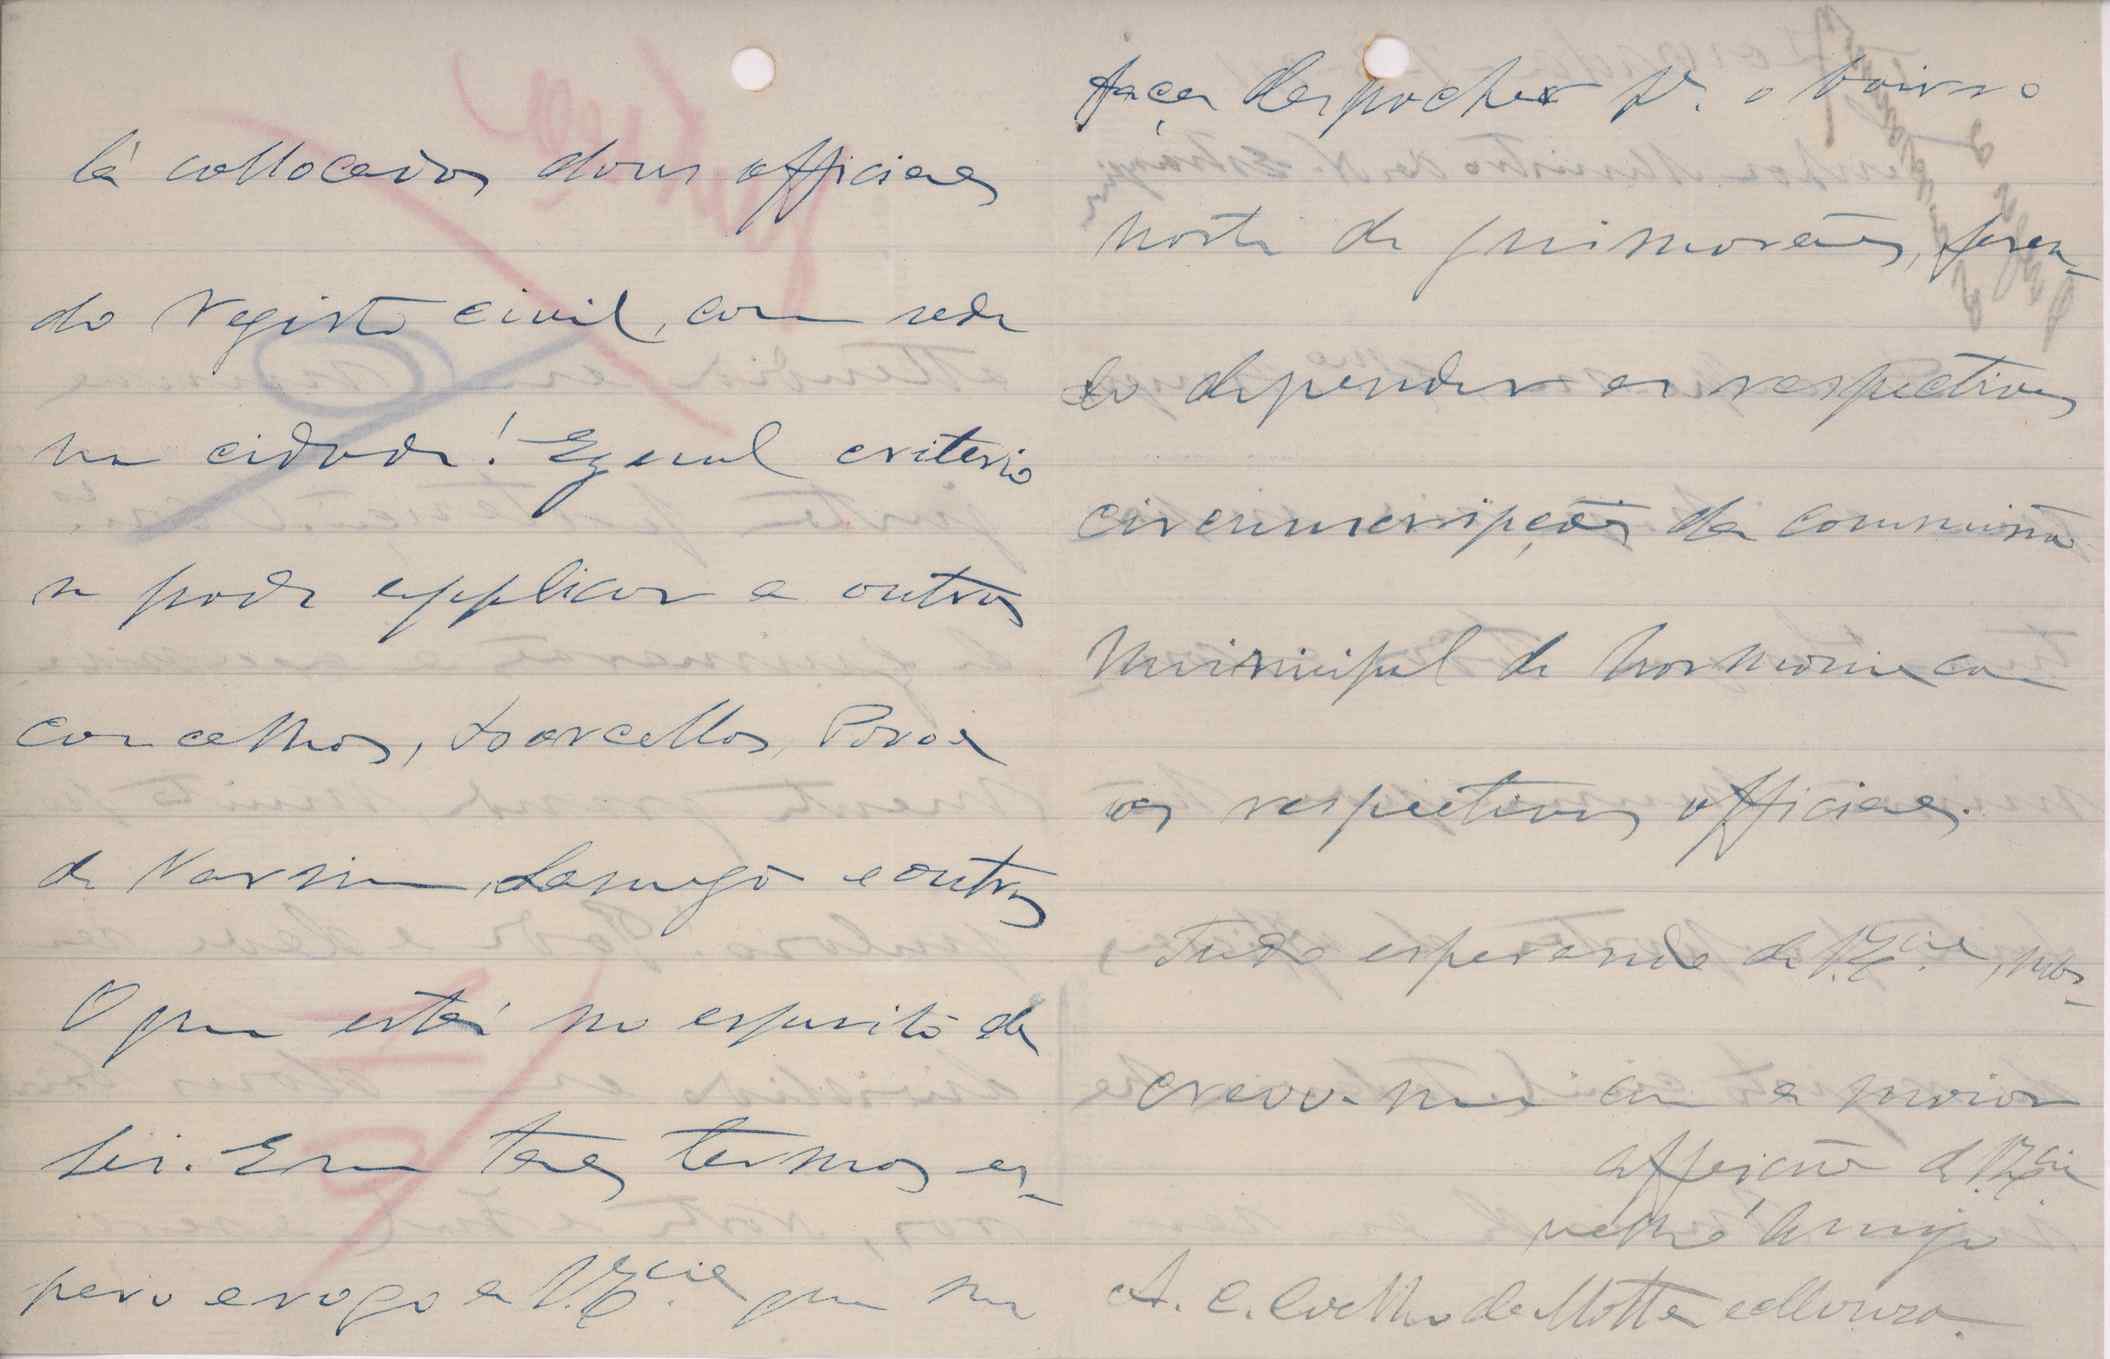 lá collocados dous officiaes
do registo civil, com sede
na cidade! Egual criterio
se pode applicar a outros
concelhos, Barcellos, Povoa
de Varzim, Lamego e outros
O que está no espirito da
lei. Em taes termos es-
pero e rogo a V. Ex.cia que me
faça despachar p.a o bairro
norte de Guimarães, fazen-
do depender as respectivas
circumscripções da commissão
Municipal de harmonia com
os respectivos officiaes.
Tudo esperando de V. Ex.cia, subs-
crevo-me com a maior
affeição de V. Ex.cia
velho Amigo
A. C. Coelho da Motta